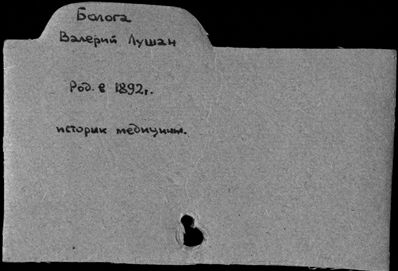 Болога
Валерий Лушан
Род. в 1892г.
историк медицины.